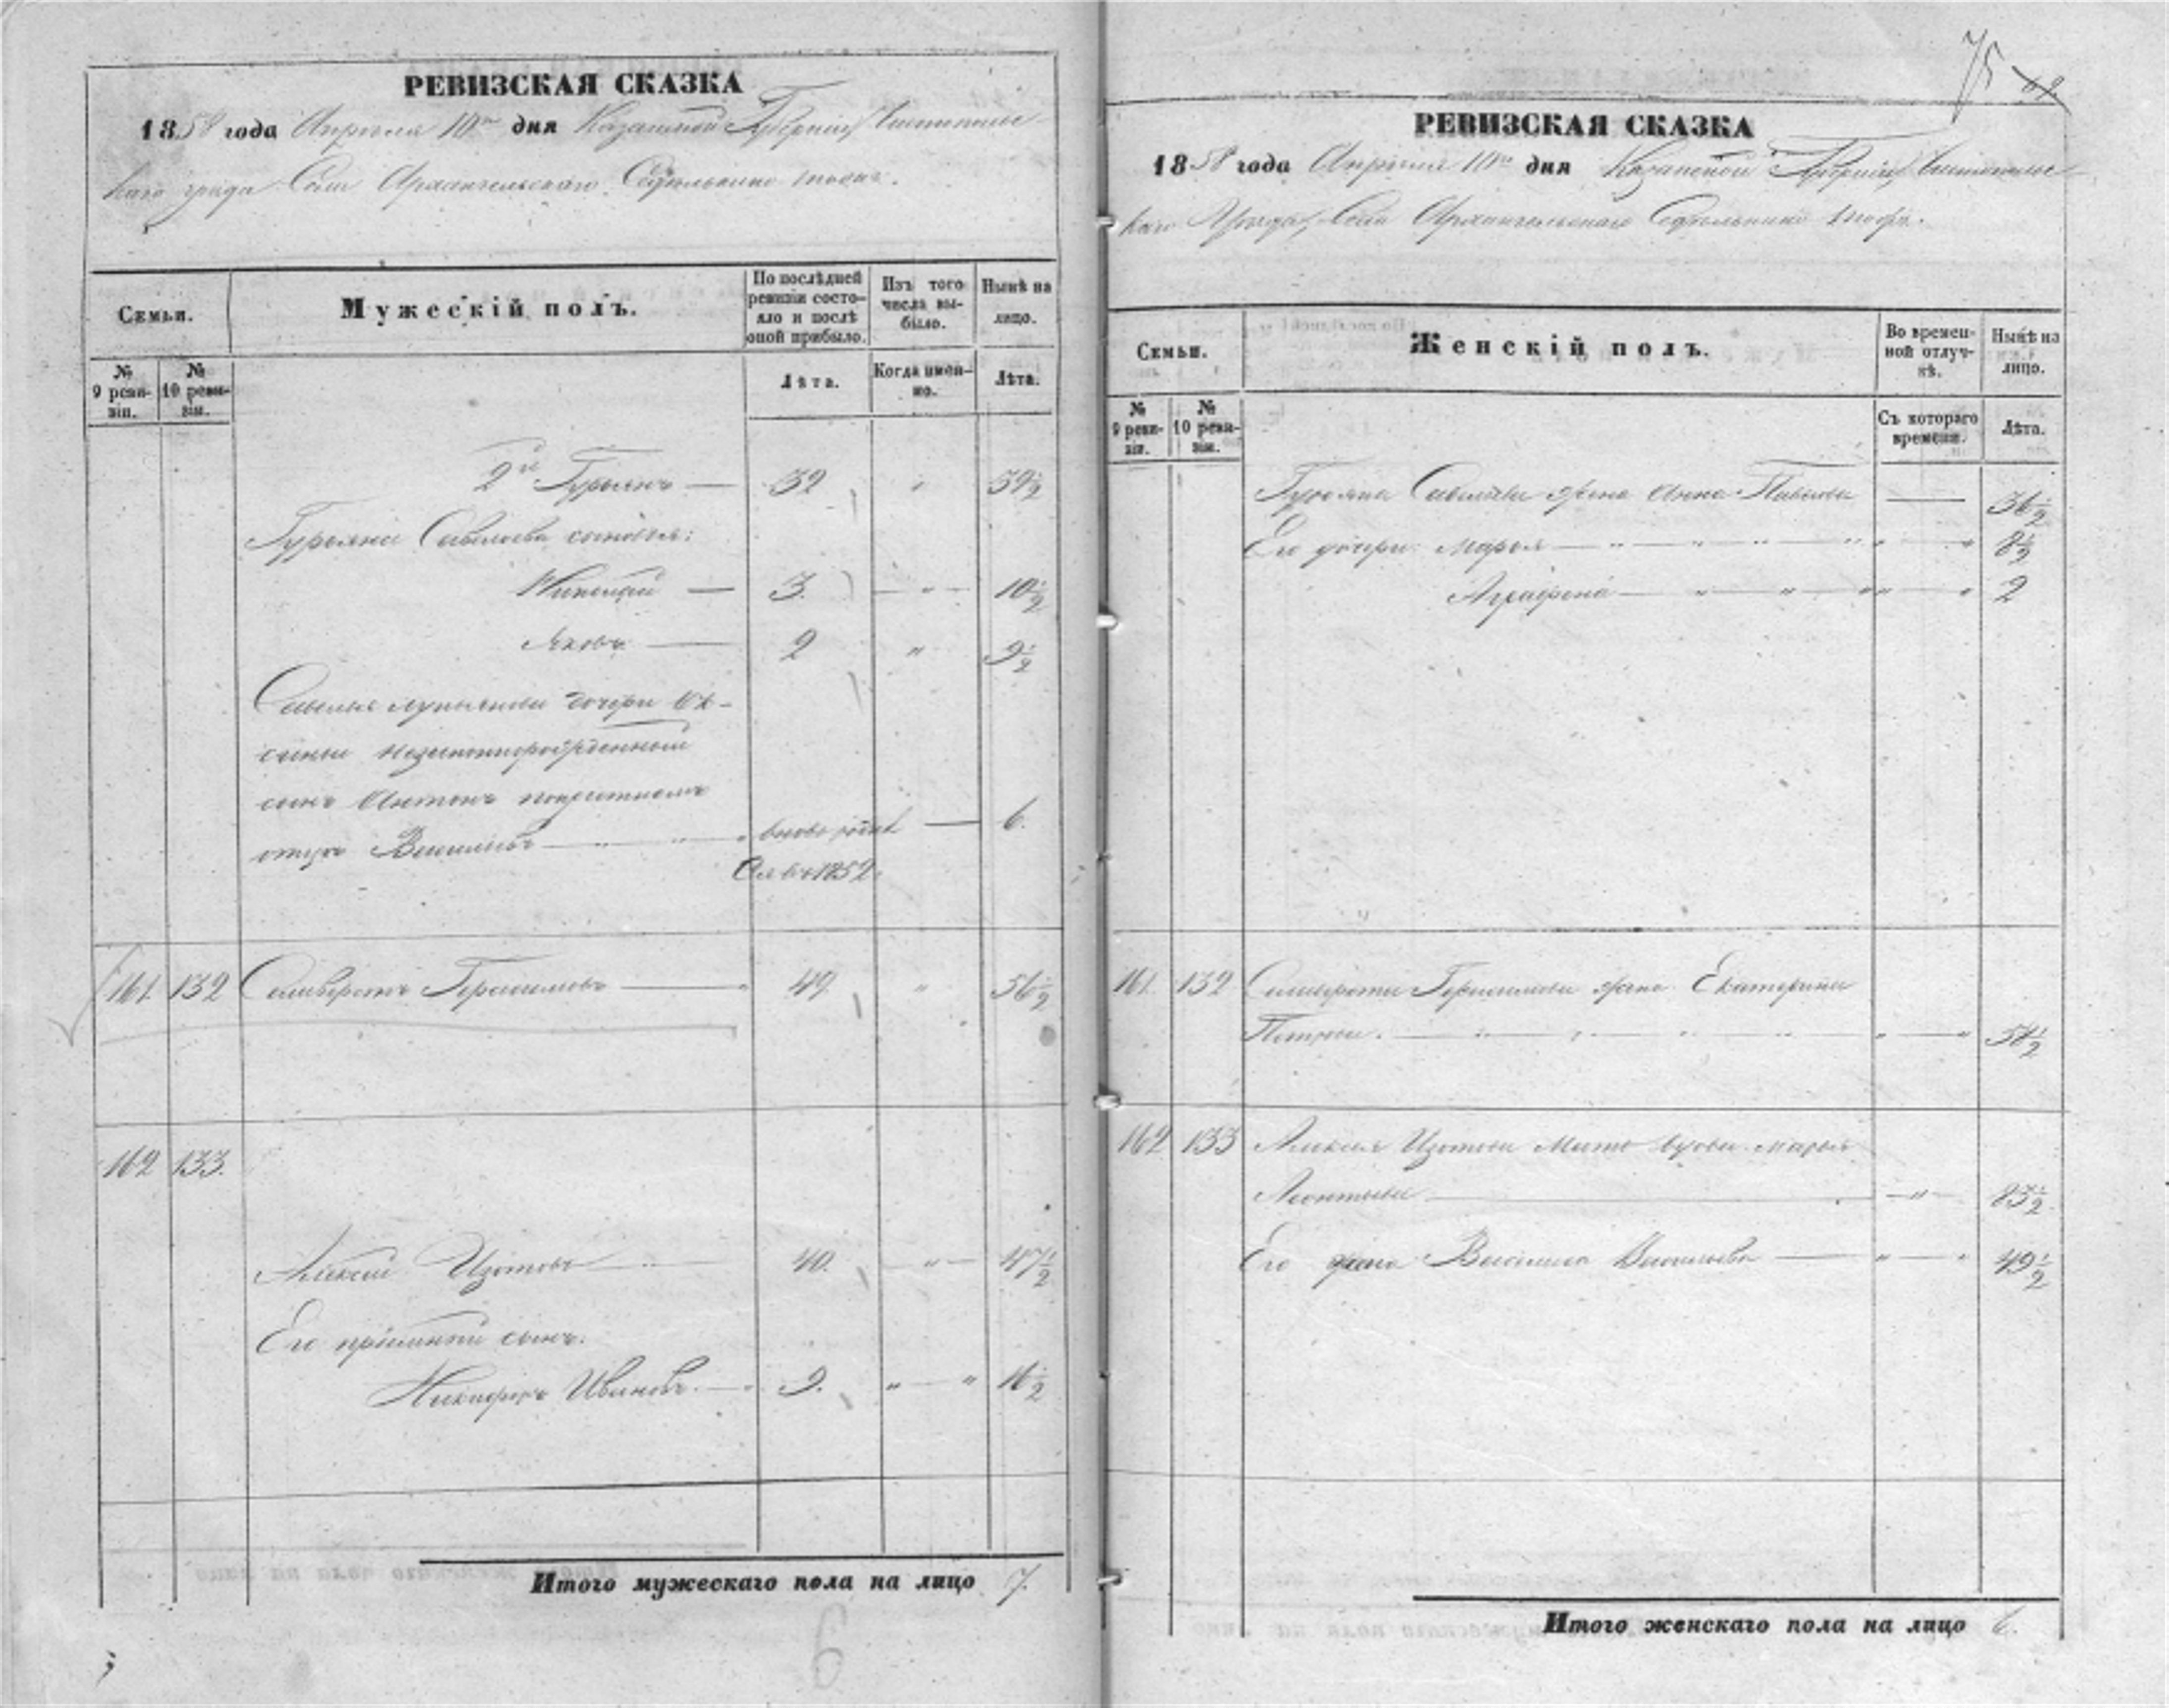 РЕВИЗСКАЯ СКАЗКА
1858 года Апреля 10го дня Казанской Губернии Чистопольс-
каго уезда Села Архангельскаго тожъ.
Семьи.
Мужескій полъ.
По послѣдней ревизіи состо-яло и послѣ оной прибыло.
Изъ того числа вы-было.
Нынѣ на лицо.
№ 9 реви-зіи.
№ 10 реви-зіи.
Лѣта.
Когда имен-но.
Лѣта.
2й Гурьянъ — 32 " 39½
Гурьяна Савельева сыновья:
3 — " — 10½
Яковъ — 2 " 9½
Савелья Лукьянова дочери Ок-
синьи незаконнорожденный
сынъ Антонъ
отцу Васильевъ — " — " вновь рожд — 6.
въ 1852.
161. 132 Селиверстъ Герасимовъ — 49. " 56½
162 133.
Алексей Изотовъ — 40. " — 47½
Его пріемный сынъ.
Никифоръ Ивановъ. — 9. " — " 16½
Итого мужескаго пола на лицо 7.
6
75
РЕВИЗСКАЯ СКАЗКА
1858 года Апреля 10го дня Казанской Губерніи Чистопольс-
каго Уезда, Села Архангельскаго тожъ.
Семьи.
Женскій полъ.
Во времен-ной отлуч-кѣ.
Нынѣ на лицо.
№ 9 реви-зіи.
№ 10 реви-зіи.
Съ котораго времени.
Лѣта.
Гурьяна Савельева жена Анна Павлова — 36½
Его дочери: Марья — " — " — " — " " — " 8½
Аграфена — " — " — " " — " 2
161. 132 Селиверста Герасимова жена Екатерина
Петрова. — " — " — " — " — " — " 58½
162 133 Алексея Изотова Мать вдова Марья
Леонтьева — — " — 83½
Его жена Василиса Васильева — " — " 49½
Итого женскаго пола на лицо 6.